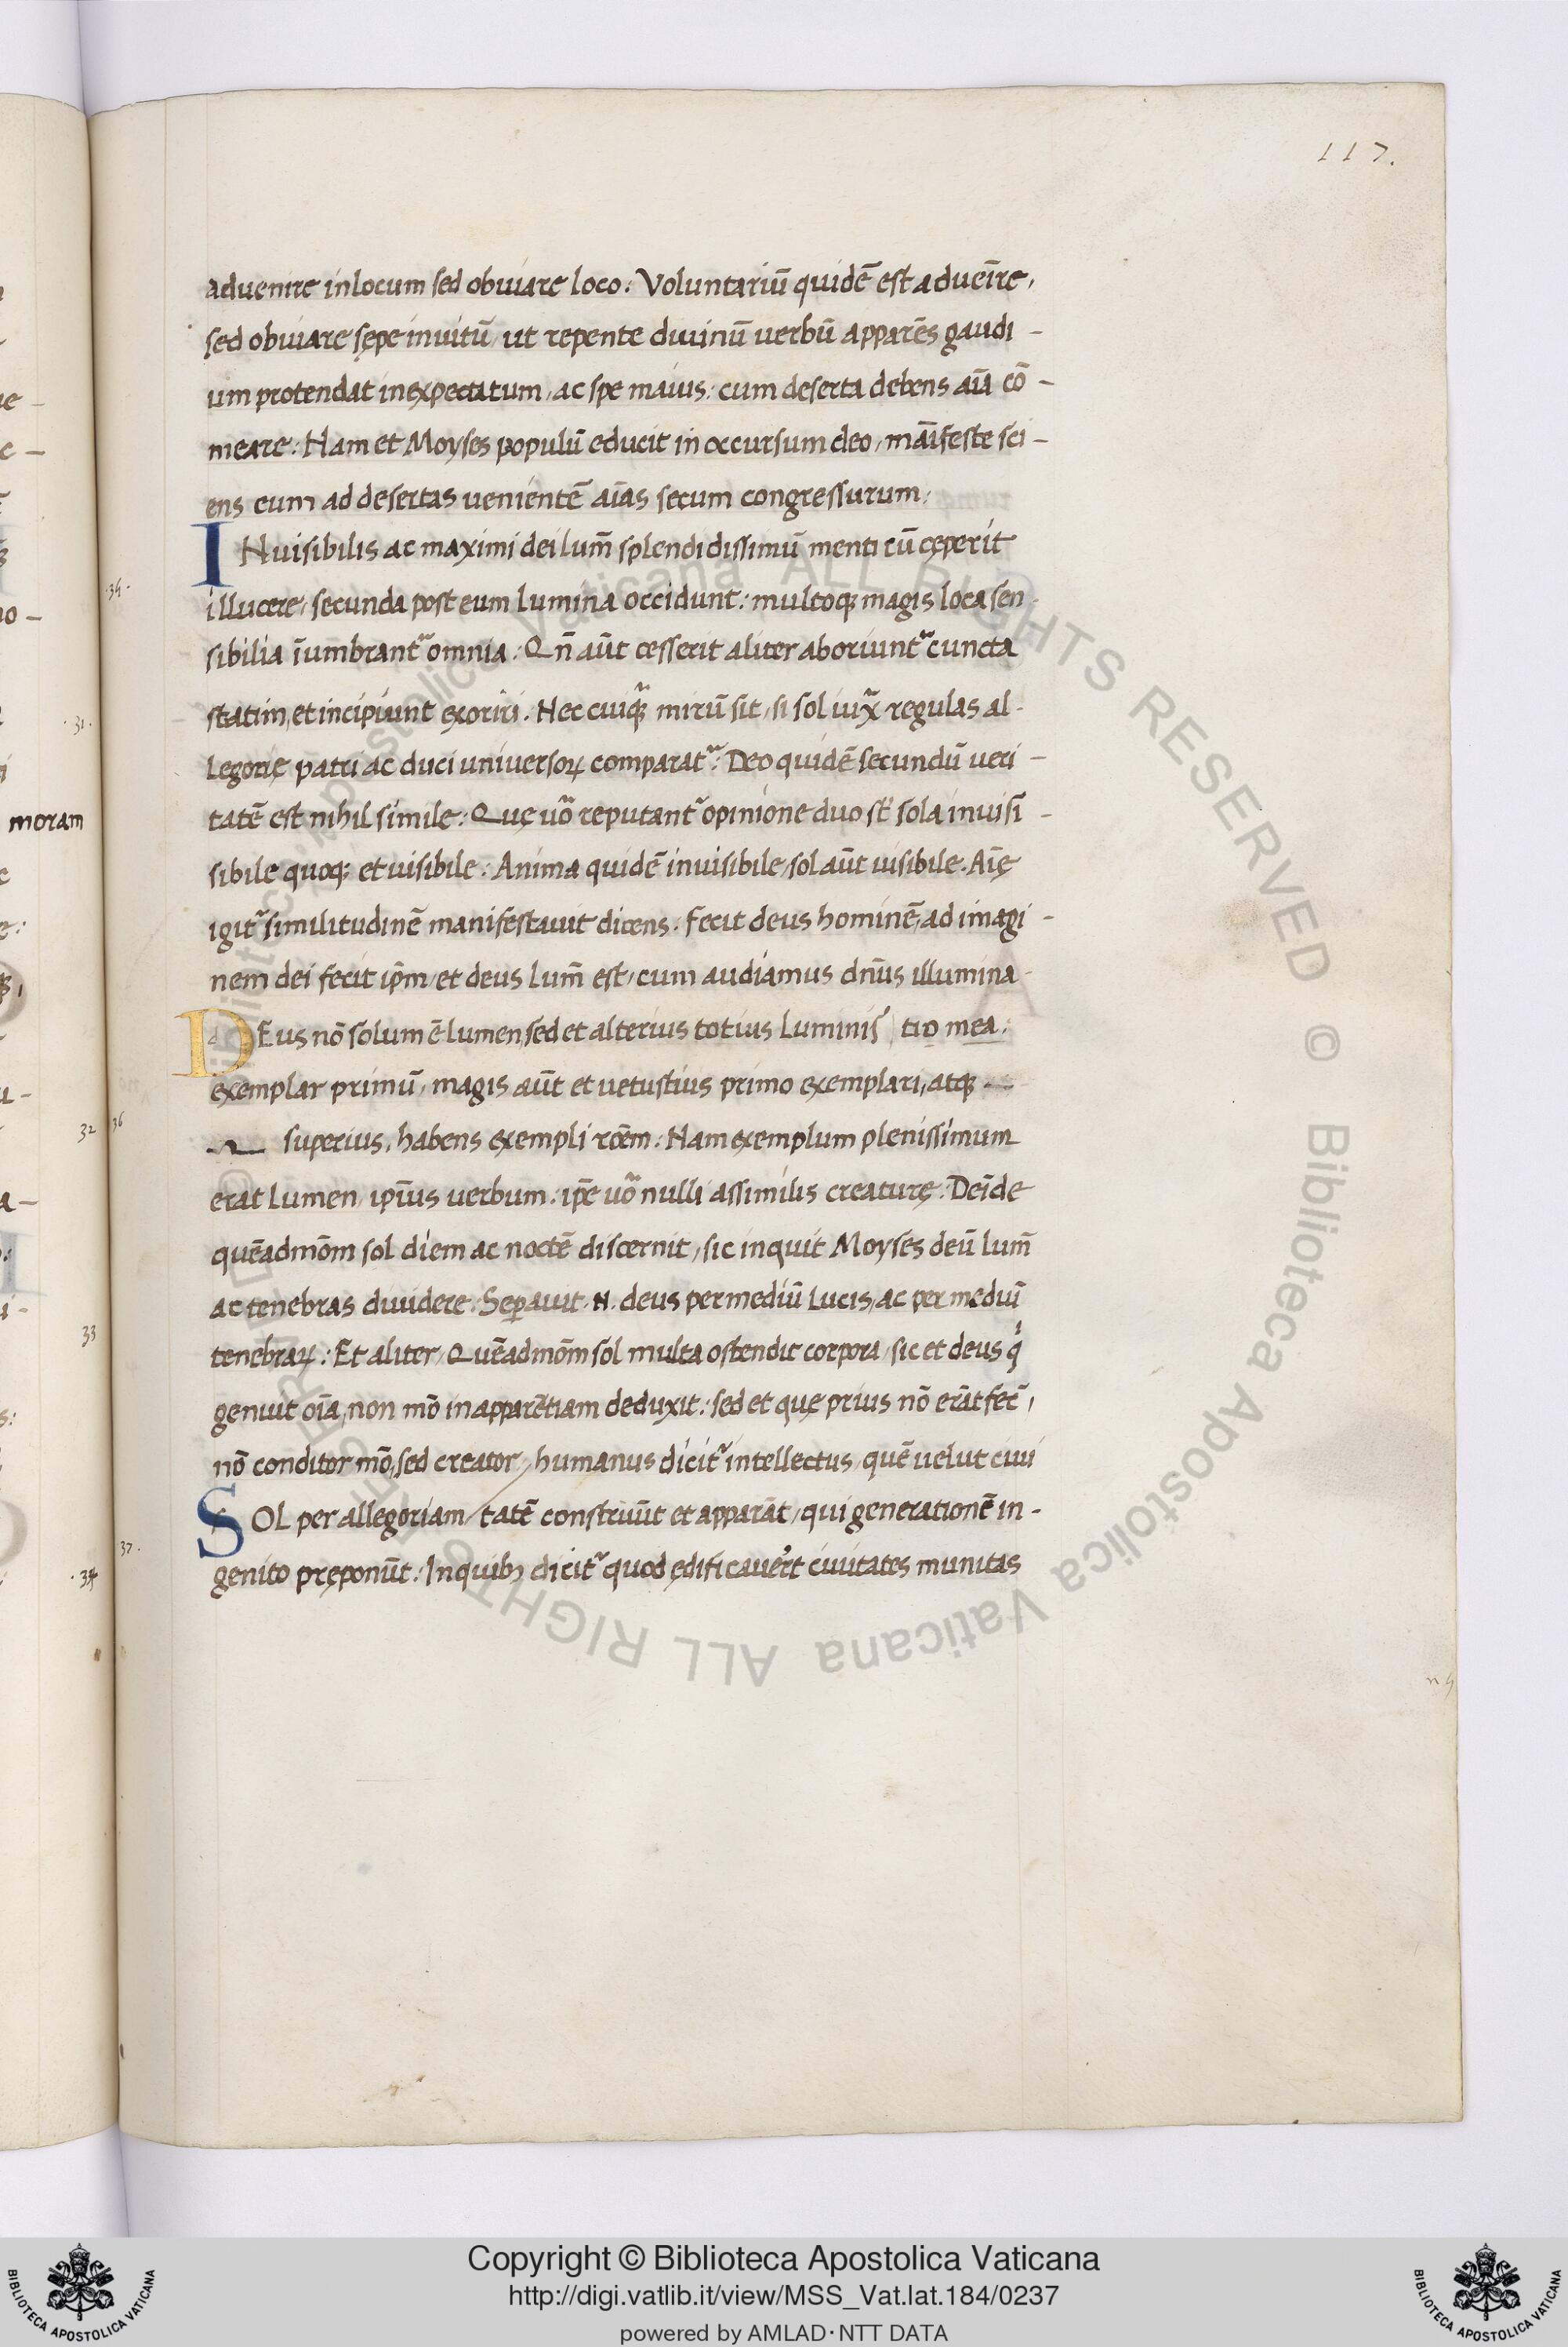 117.
advenire in locum sed obviare loco: Voluntariū quidē est adveīre,
sed obviare sępe invitū, ut repente divinū verbū apparēs gaudi-
um protendat inexpectatum, ac spe maius: cum deserta debens aīa cō-
meare: Nam et Moyses populū educit in occursum deo, māifeste sci-
ens eum ad desertas uenientē aīas secum congressurum:
INuisibilis ac maximi dei lum̄ splendidissimū menti cū cęperit
·34·
illucere, secunda post eum lumina occidunt: multoq; magis loca sen-
sibilia īumbrant᷑ omnia: Qn̄ aūt cesserit aliter aboriunt᷑ cuncta
statim, et incipiunt exoriri. Nec cuiq̃ mirū sit, si sol iux̄ regulas al-
·31·
legorię patri ac duci universoꝝ comparat᷑: Deo quidē secundū veri-
tatē est nihil simile: Quę uō reputant᷑ opinione duo st̄ sola inuisi-
moram
sibile quoq; et uisibile: Anima quidē inuisibile, sol aūt uisibile. Aīę
igit᷑ similitudinē manifestavit dicens. fecit deus hominē, ad imagi-
nem dei fecit ip̄m, et deus lum̄ est, cum audiamus dn̄us illumina-
DEus nō solum ē lumen, sed et alterius totius luminis tio mea:
exemplar primū, magis aūt et uetustius primo exemplari, atq;
32 36
superius, habens exempli rōem: Nam exemplum plenissimum
erat lumen ip̄ius uerbum: ip̄e uō nulli assimilis creaturę: Deīde
quēadmōm sol diem ac noctē discernit, sic inquit Moyses deū lum̄
ac tenebras dividere: Sep̄avit .N. deus per mediū lucis, ac per mediū
33
tenebraꝝ: Et aliter, Quēadmōm sol multa ostendit corpora, sic et deus qⁱ
genuit oīa, non mō in apparētiam deduxit: sed et quę prius nō erāt fec̄,
nō conditor mō, sed creator, humanus dicit᷑ intellectus, quē uelut ciui
SOL per allegoriam tatē construūt et apparāt, qui generationē in-
37·
genito pręponūt: In quibꝫ dicit᷑ quod ędificauer̄t ciuitates munitas
·34
Copyright © Biblioteca Apostolica Vaticana
http://digi.vatlib.it/view/MSS_Vat.lat.184/0237
powered by AMLAD·NTT DATA
BIBLIOTECA APOSTOLICA VATICANA
BIBLIOTECA APOSTOLICA VATICANA
© Biblioteca Apostolica Vaticana ALL RIGHTS RESERVED © Biblioteca Apostolica Vaticana ALL RIGHTS RESERVED